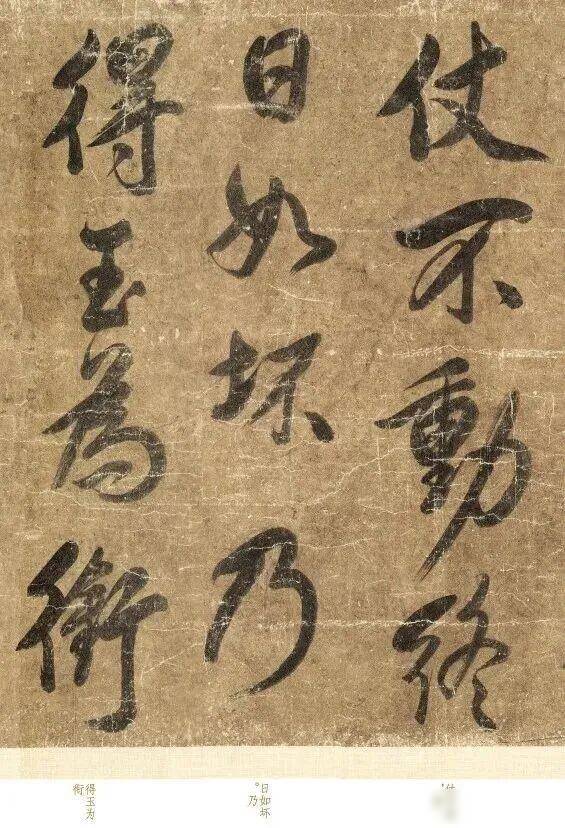 仗不動終
日如坏乃
得玉為衡
日如坏
。乃
得玉为
衡